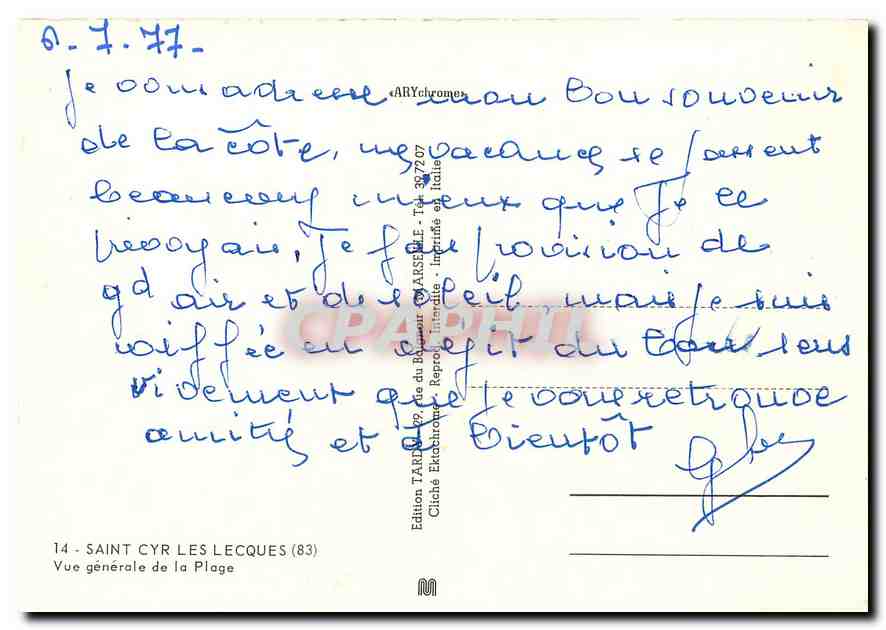 6-7.77-
Je vous adresse mon bon souvenir
de la côte, mes vacances se passent
beaucoup mieux que Je le
prévoyais, Je fais provision de
gd air et de soleil, mais je suis
coiffée en dépit du bon sens
vivement que je vous retrouve
amitiés et à bientôt
«ARYchrome»
Edition TARDY - 29, rue du Baignoir - MARSEILLE - Tél. 39.72.07
Cliché Ektachrome - Reprod. Interdite - Imprimé en Italie
CPAPHIL
14 - SAINT CYR LES LECQUES (83)
Vue générale de la Plage
M